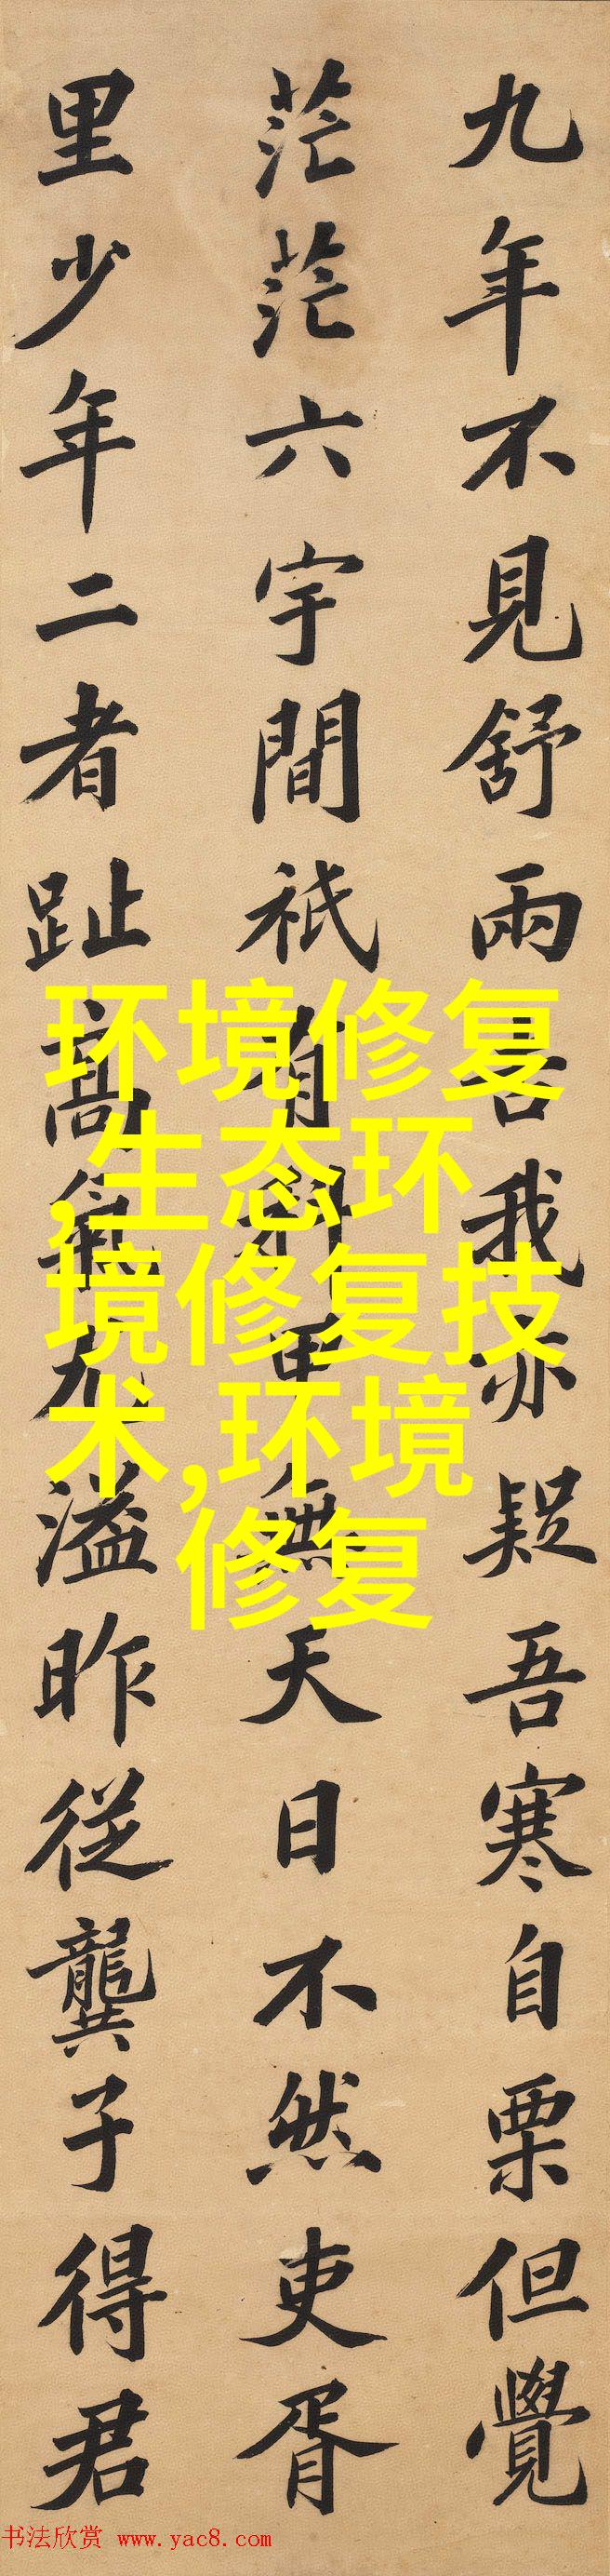 九年不見舒兩我亦疑吾寒自栗但覺
茫茫六宇間祇有科無天日不然吏胥
里少年二者趾高氣尤溢昨従龔子得君
环境修复
,生态环
境修复技
术,环境
修复
书法欣赏 www.yac8.com